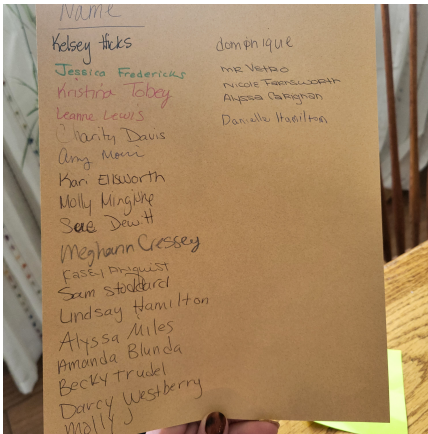 Name
Kelsey Hicks
Jessica Fredericks
Kristina Tobey
Leanne Lewis
Charity Davis
Amy
Kari Ellsworth
Molly
Sue Dewitt
Meghann Cressey
Sam Stoddard
Lindsay Hamilton
Alyssa Miles
Amanda Blunda
Becky Trudel
Darcy Westberry
Molly
domphique
Mr Vetro
Nicole Farnsworth
Alyssa Carignan
Danielle Hamilton